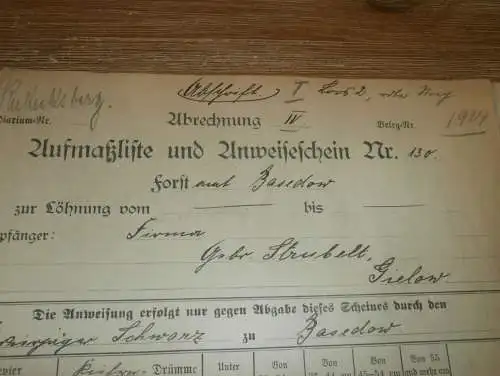 Kukuksberg. Abschrift I Los 2, oder Weg
diarium-Nr. Abrechnung IV Beleg-Nr. 1924
Aufmaßliste und Anweiseschein Nr. 130.
Forstamt Basedow
zur Löhnung vom bis
pfänger: Firma
Gebr Strubelt,
Gielow
Die Anweisung erfolgt nur gegen Abgabe dieses Scheines durch den
Schwarz zu Basedow
pier Drümme Unter Von Von Von Von 55